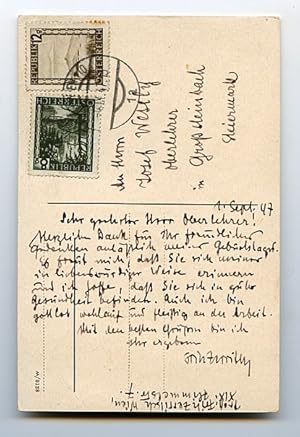 12
REPUBLIK
ÖSTERREICH
8
REPUBLIK
ÖSTERREICH
An Herrn
Josef Westly
Oberlehrer
in Großsteinbach
Steiermark
1. Sept. 47
Sehr geehrter Herr Oberlehrer!
Herzlichen Dank für Ihr freundliches
Gedenken anläßlich meines Geburtstags.
Es freut mich, daß Sie sich meiner
in liebenswürdiger Weise erinnern
und ich hoffe, daß Sie sich in guter
Gesundheit befinden. Auch ich bin
gottlob wohlauf und fleißig an der Arbeit.
Mit den besten Grüßen bin ich
Ihr ergebener
Fritz Zerritsch
Prof. Fritz Zerritsch, Wien,
XIX.